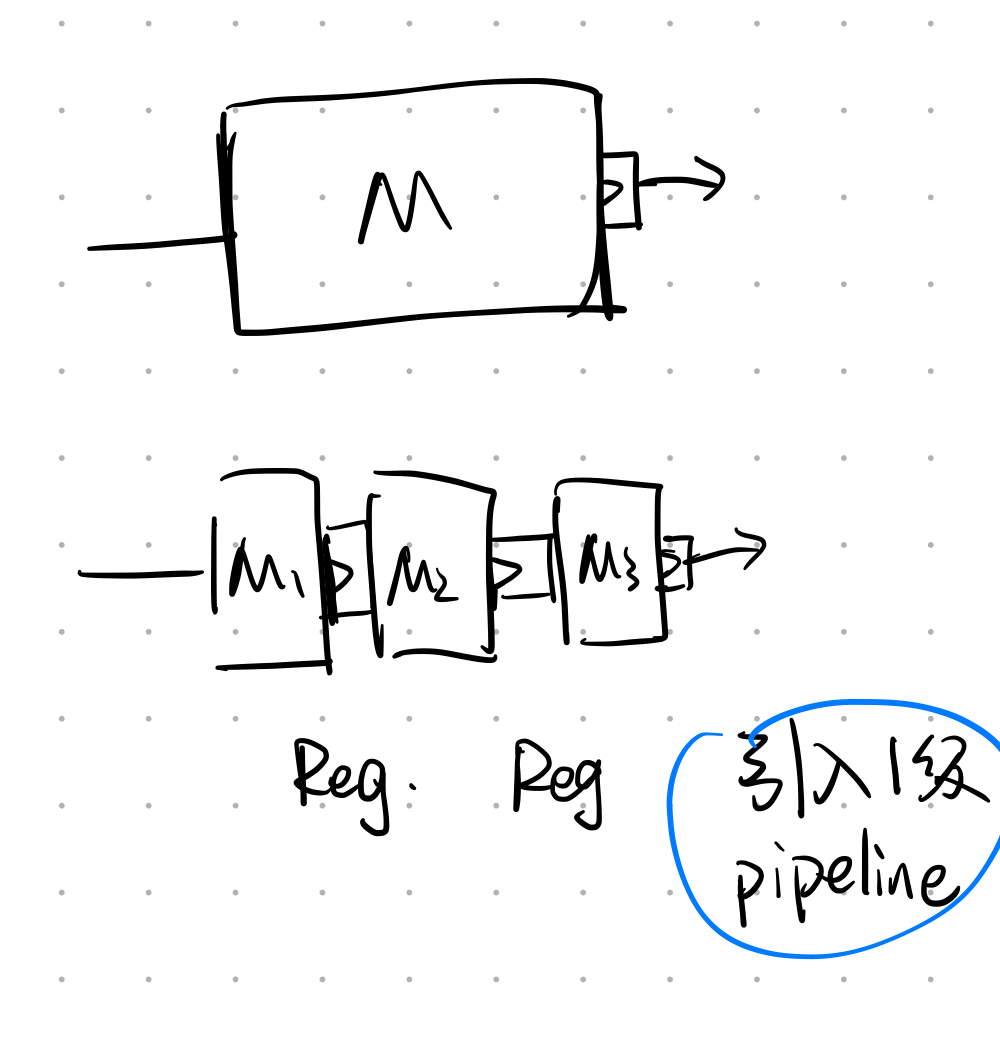 M
M1 M2 M3
Reg. Reg
引入1级
pipeline